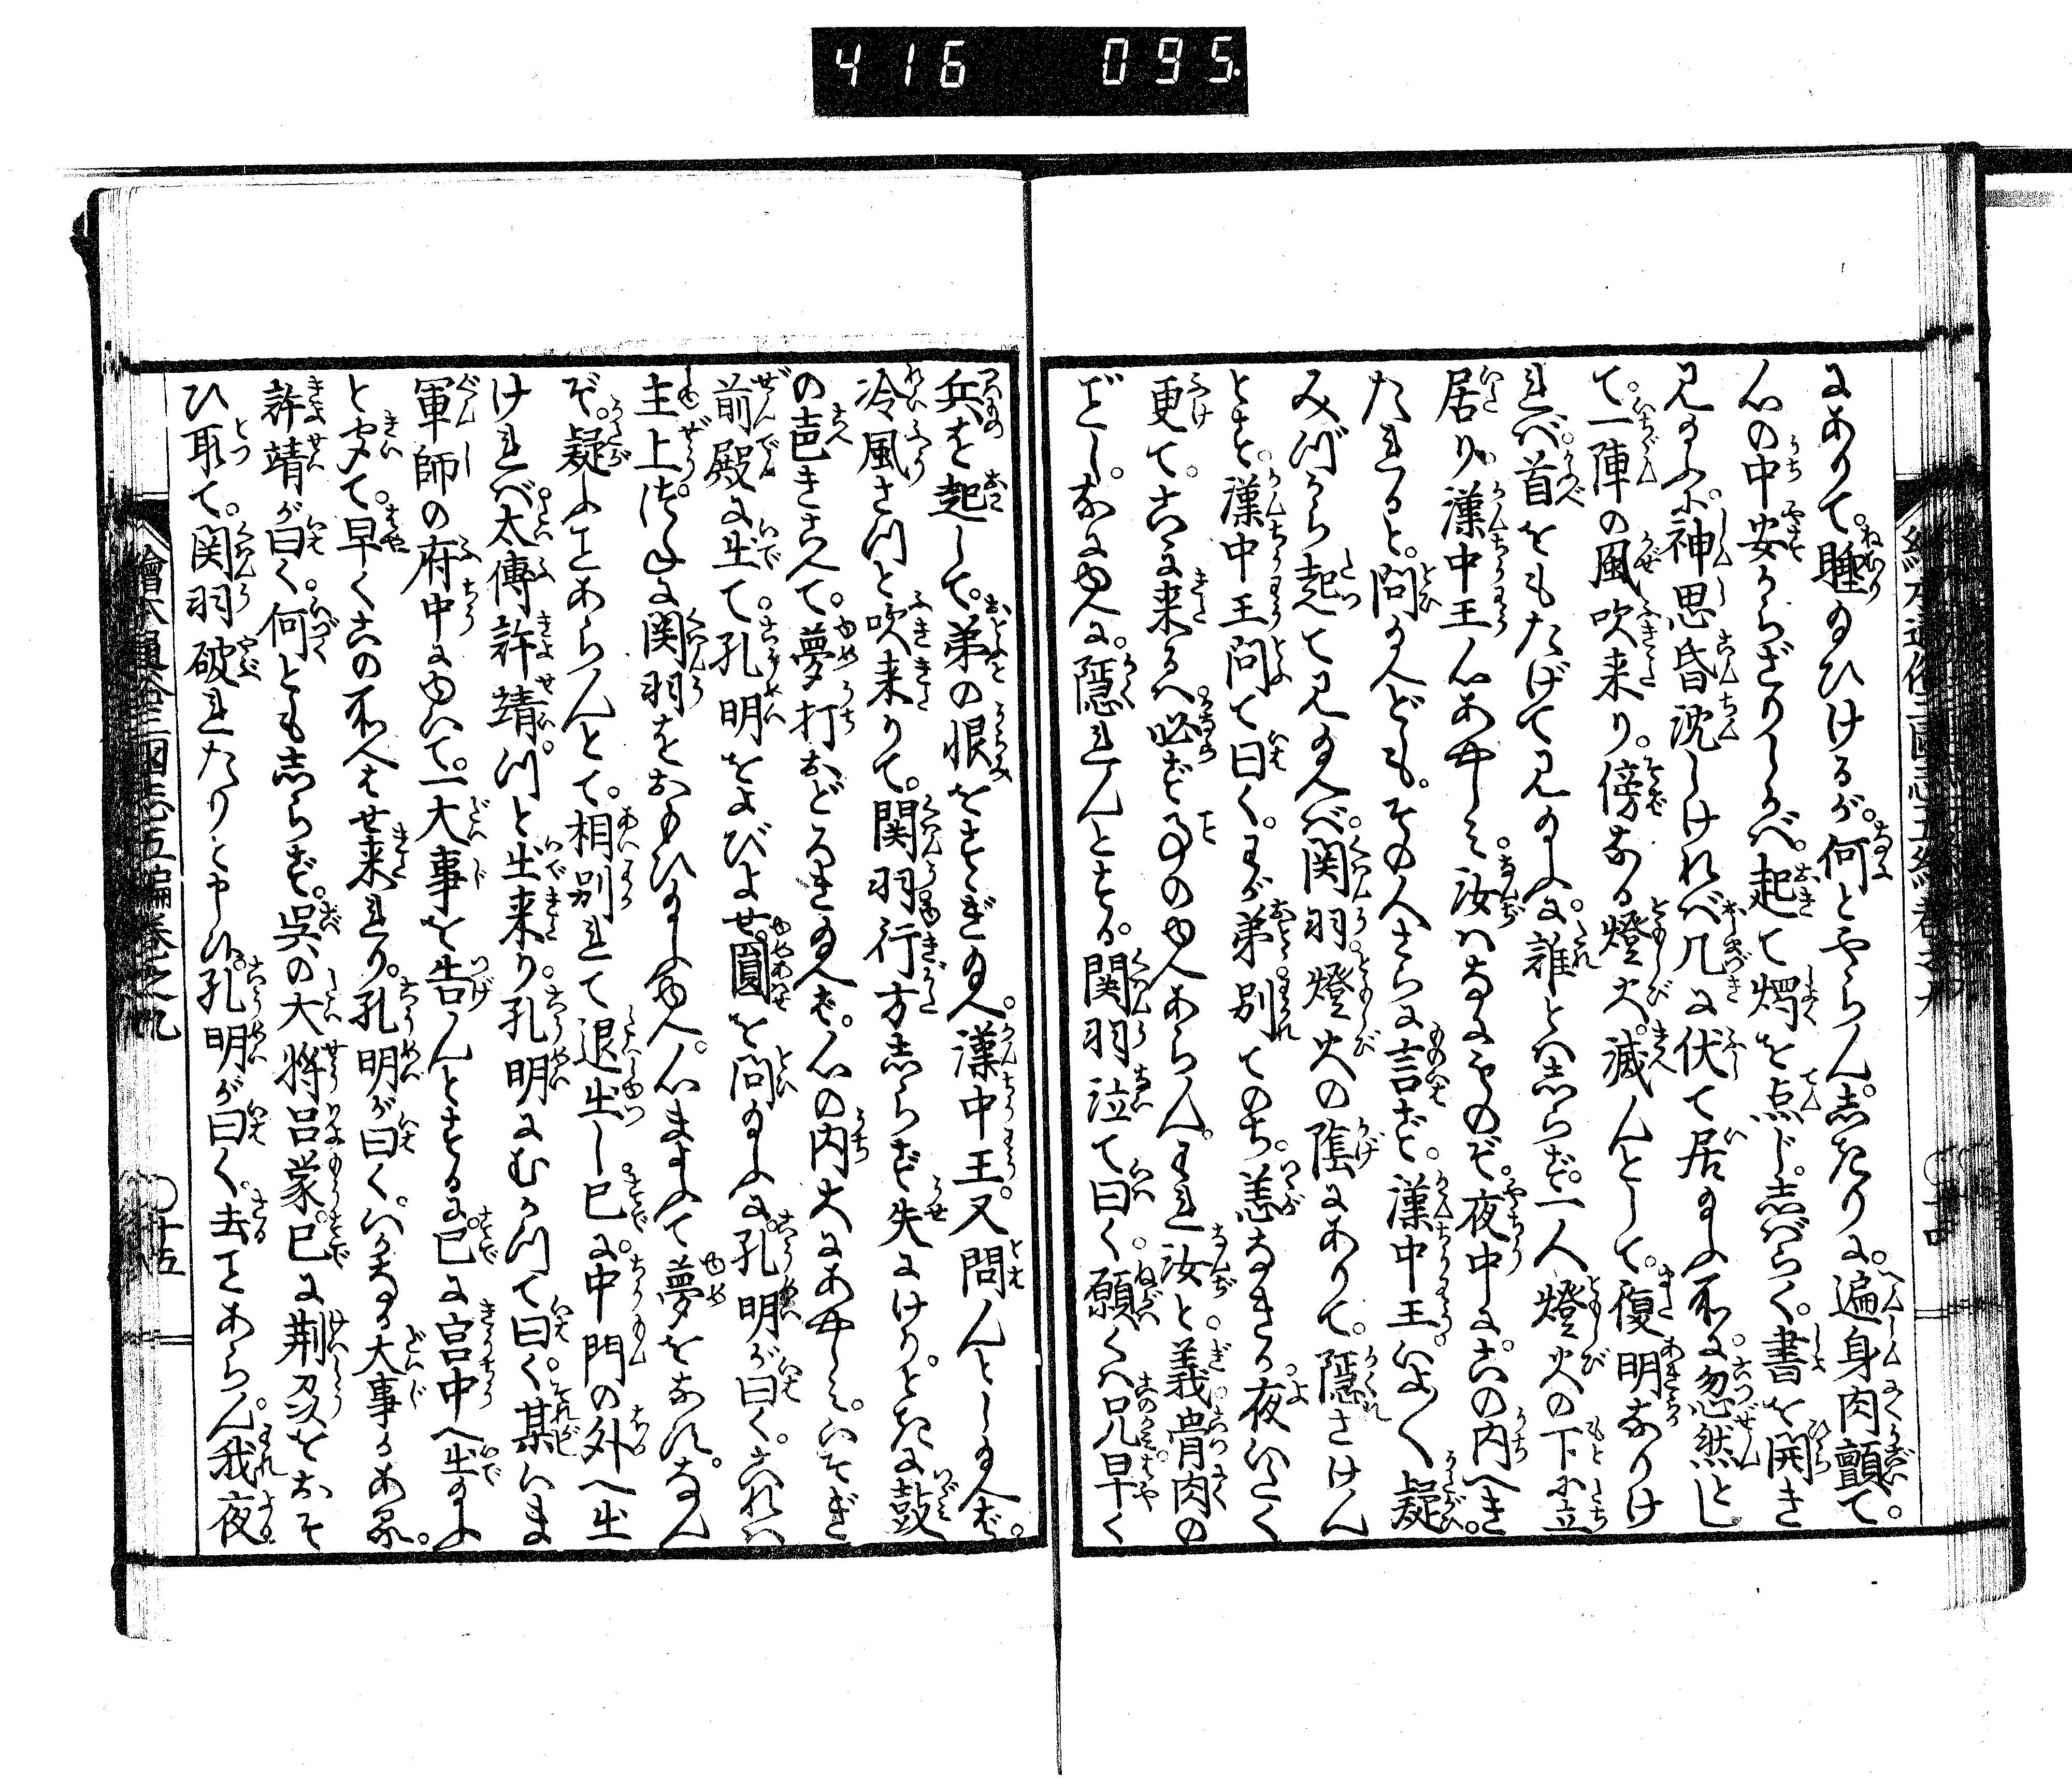 416 095.
にありて。睡ゐひけるが。何とやらん。志きりに。遍身肉顫て。
心の中安からざりしかバ。起て燭を点じ。志ばらく。書を開き
見るふに。神思昏沈しけれバ几に伏て居玉ふ所に。忽然とし
て。一陣の風吹来り。傍なる燈火滅んとして。復明なりけ
れバ。首をもたげて見玉ふに。誰とハ志らず。一人燈火の下に立
居り。漢中王心あやしミ。汝ハなにものぞ。夜中に。この内へき
たれると。問玉へども。その人さらに言ず。漢中王。いよ〱疑。
みづから起て見玉へバ。関羽。燈火の陰にありて。隠さけん
とす。漢中王問て曰く。わが弟。別てのち。恙なきか。夜いたく
更て。こゝに来るハ必ず事のゆへあらん。われ汝と。義骨肉の
ごとし。なにゆへに。隠れんとする。関羽泣て曰く。願くハ兄早く
兵を起して。弟の恨をすゝぎ玉へ。漢中王。又問んとし玉へば。
冷風さつと吹来りて。関羽行方志らず失にけり。ときに鼓
の声きこへて。夢打おどろき玉へば。心の内大にあやしミ。いそぎ
前殿に出て。孔明をよびよせ。圓を問玉ふに。孔明が曰く。これハ
主上。つねに関羽をおもひ玉ふゆへ。心まよふて夢をなす。なん
ぞ。疑ふことあらんとて。相別れて退出し。已に。中門の外へ出
けれバ。太傅許靖。つと出来り。孔明にむかつて曰く。某いま
軍師の府中にゆいて。一大事を告んとするに。已に宮中へ出玉ふ
と聞て。早くこの所へはせ来れり。孔明が曰く。いかなる大事かある。
許靖が曰く。何とも志らず。呉の大将呂蒙。已に荊州をおそ
ひ取て。関羽破れたりと申候。孔明が曰く。去ことあらん。我夜
繪本通俗三國志五編巻之九
十五